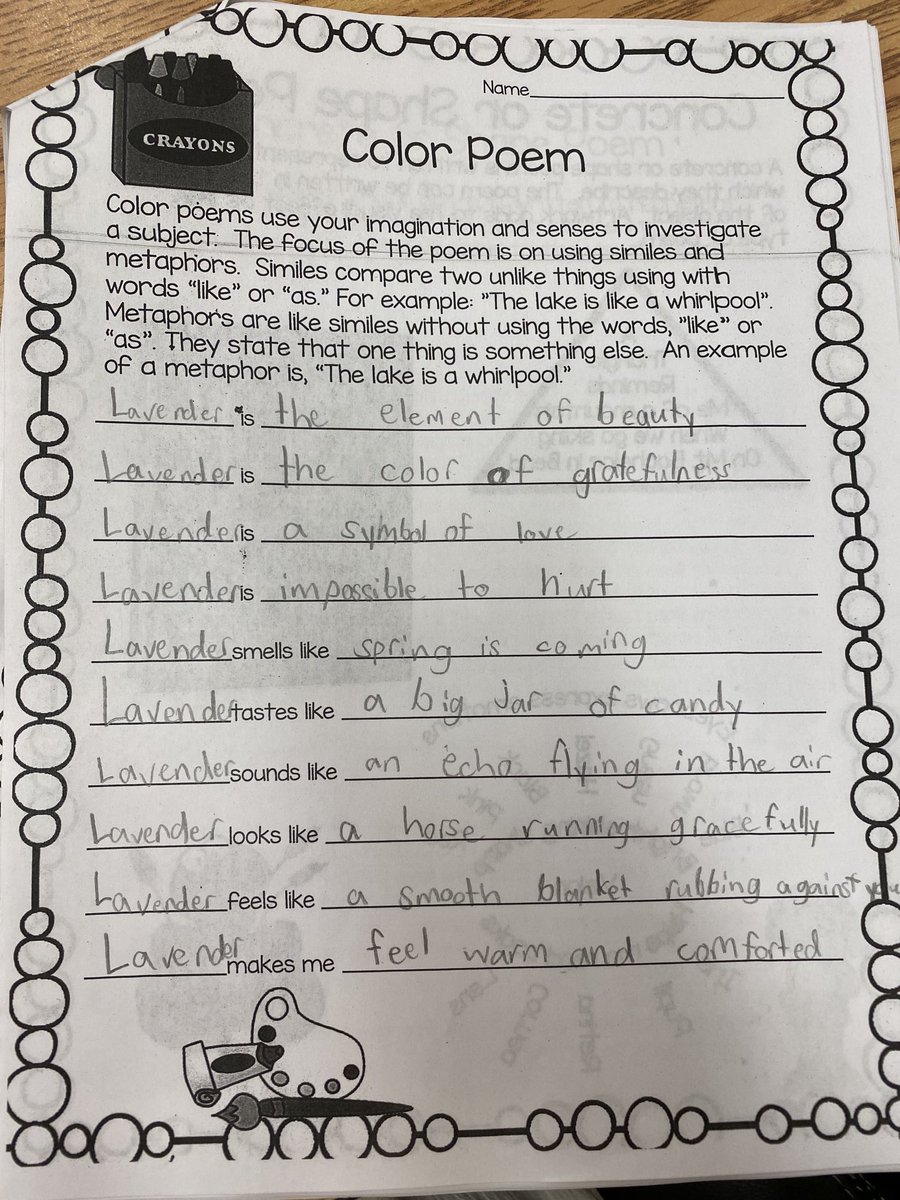 CRAYONS
Name
Color Poem
Color poems use your imagination and senses to investigate
a subject. The focus of the poem is on using similes and
metaphors. Similes compare two unlike things using with
words “like” or “as.” For example: ”The lake is like a whirlpool”.
Metaphors are like similes without using the words, ”like” or
“as”. They state that one thing is something else. An example
of a metaphor is, “The lake is a whirlpool.”
Lavender is the element of beauty
Lavender is the color of gratefulness
Lavender is a symbol of love
Lavender is impossible to hurt
Lavender smells like spring is coming
Lavender tastes like a big Jar of candy
Lavender sounds like an echo flying in the air
Lavender looks like a horse running gracefully
Lavender feels like a smooth blanket rubbing against you
Lavender makes me feel warm and comforted